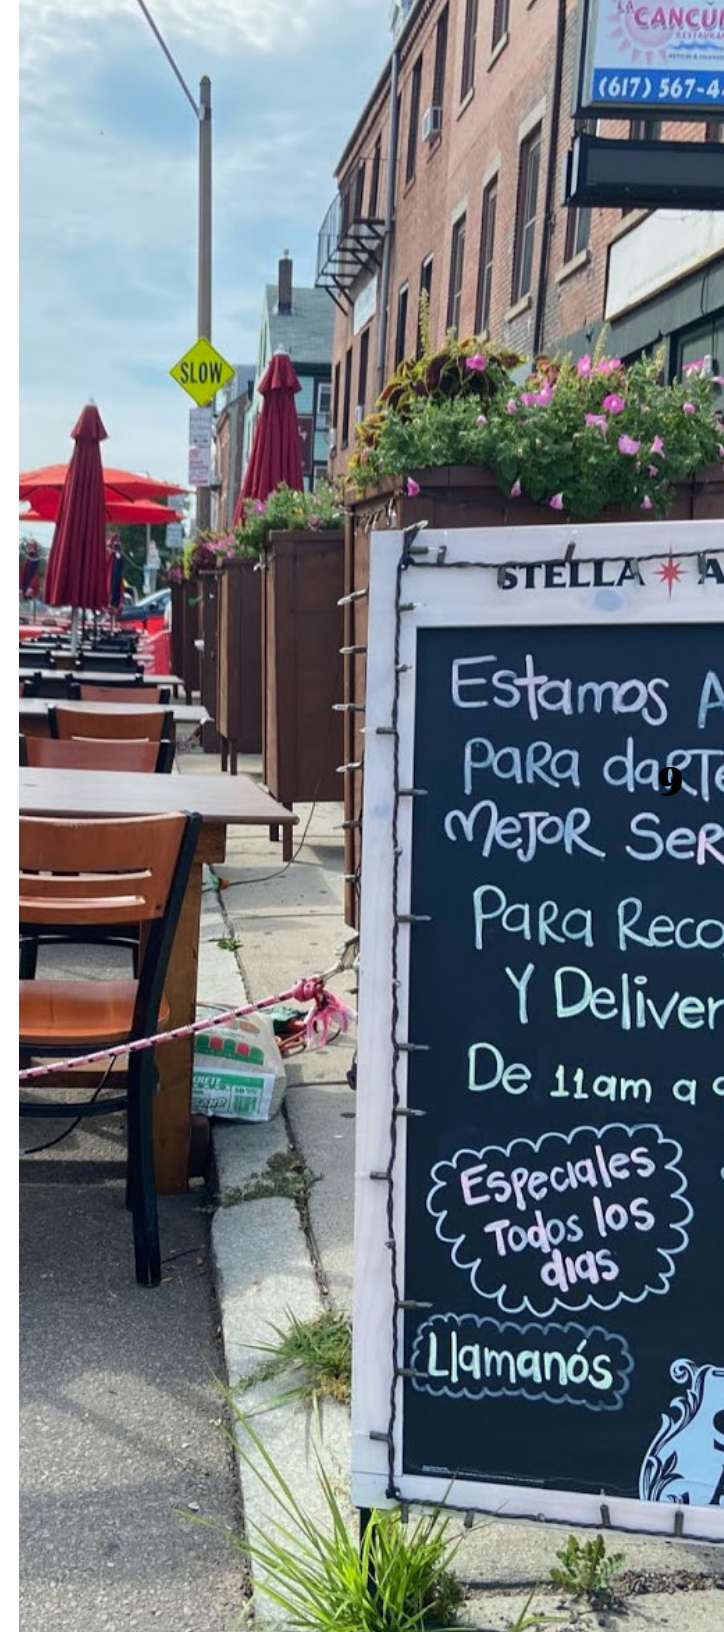 LA
CANCUN
RESTAURANT
(617) 567-4
SLOW
STELLA A
Estamos A
Para darte
Mejor Ser
9
Para Reco
Y Deliver
De 11am a
Especiales
Todos los
dias
Llamanós